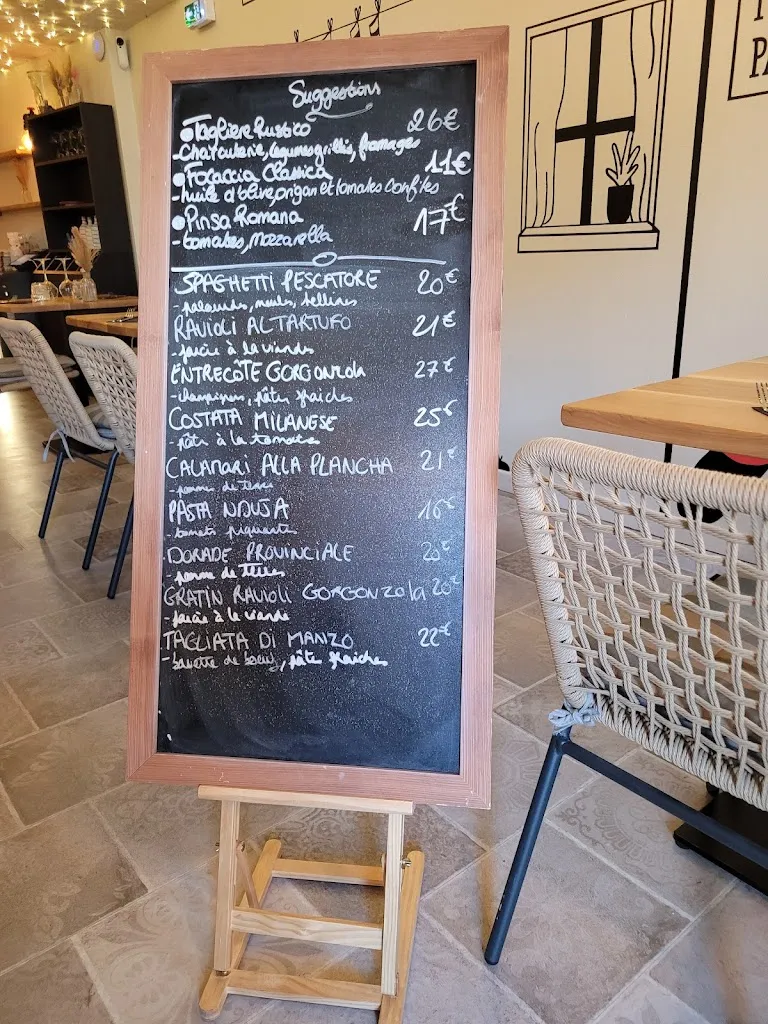 Suggestions
Tagliere Rustico 26€
- Charcuterie, légumes grillés, fromages
Focaccia Classica 11€
- huile d'olive, origan et tomates confites
Pinsa Romana 17€
- tomates, mozzarella
SPAGHETTI PESCATORE 20€
- palourdes, moules, tellines
RAVIOLI AL TARTUFO 21€
- farcie à la viande
ENTRECÔTE GORGONZOLA 27€
- champignons, pâtes fraiches
COSTATA MILANESE 25€
- pâte à la tomate
CALAMARI ALLA PLANCHA 21€
- pomme de terre
PASTA NDUJA 16€
- tomate piquante
DORADE PROVINCIALE 20€
pomme de terres
GRATIN RAVIOLI GORGONZOLA 20€
- farcie à la viande
TAGLIATA DI MANZO 22€
- bavette de boeuf, pâte fraiches